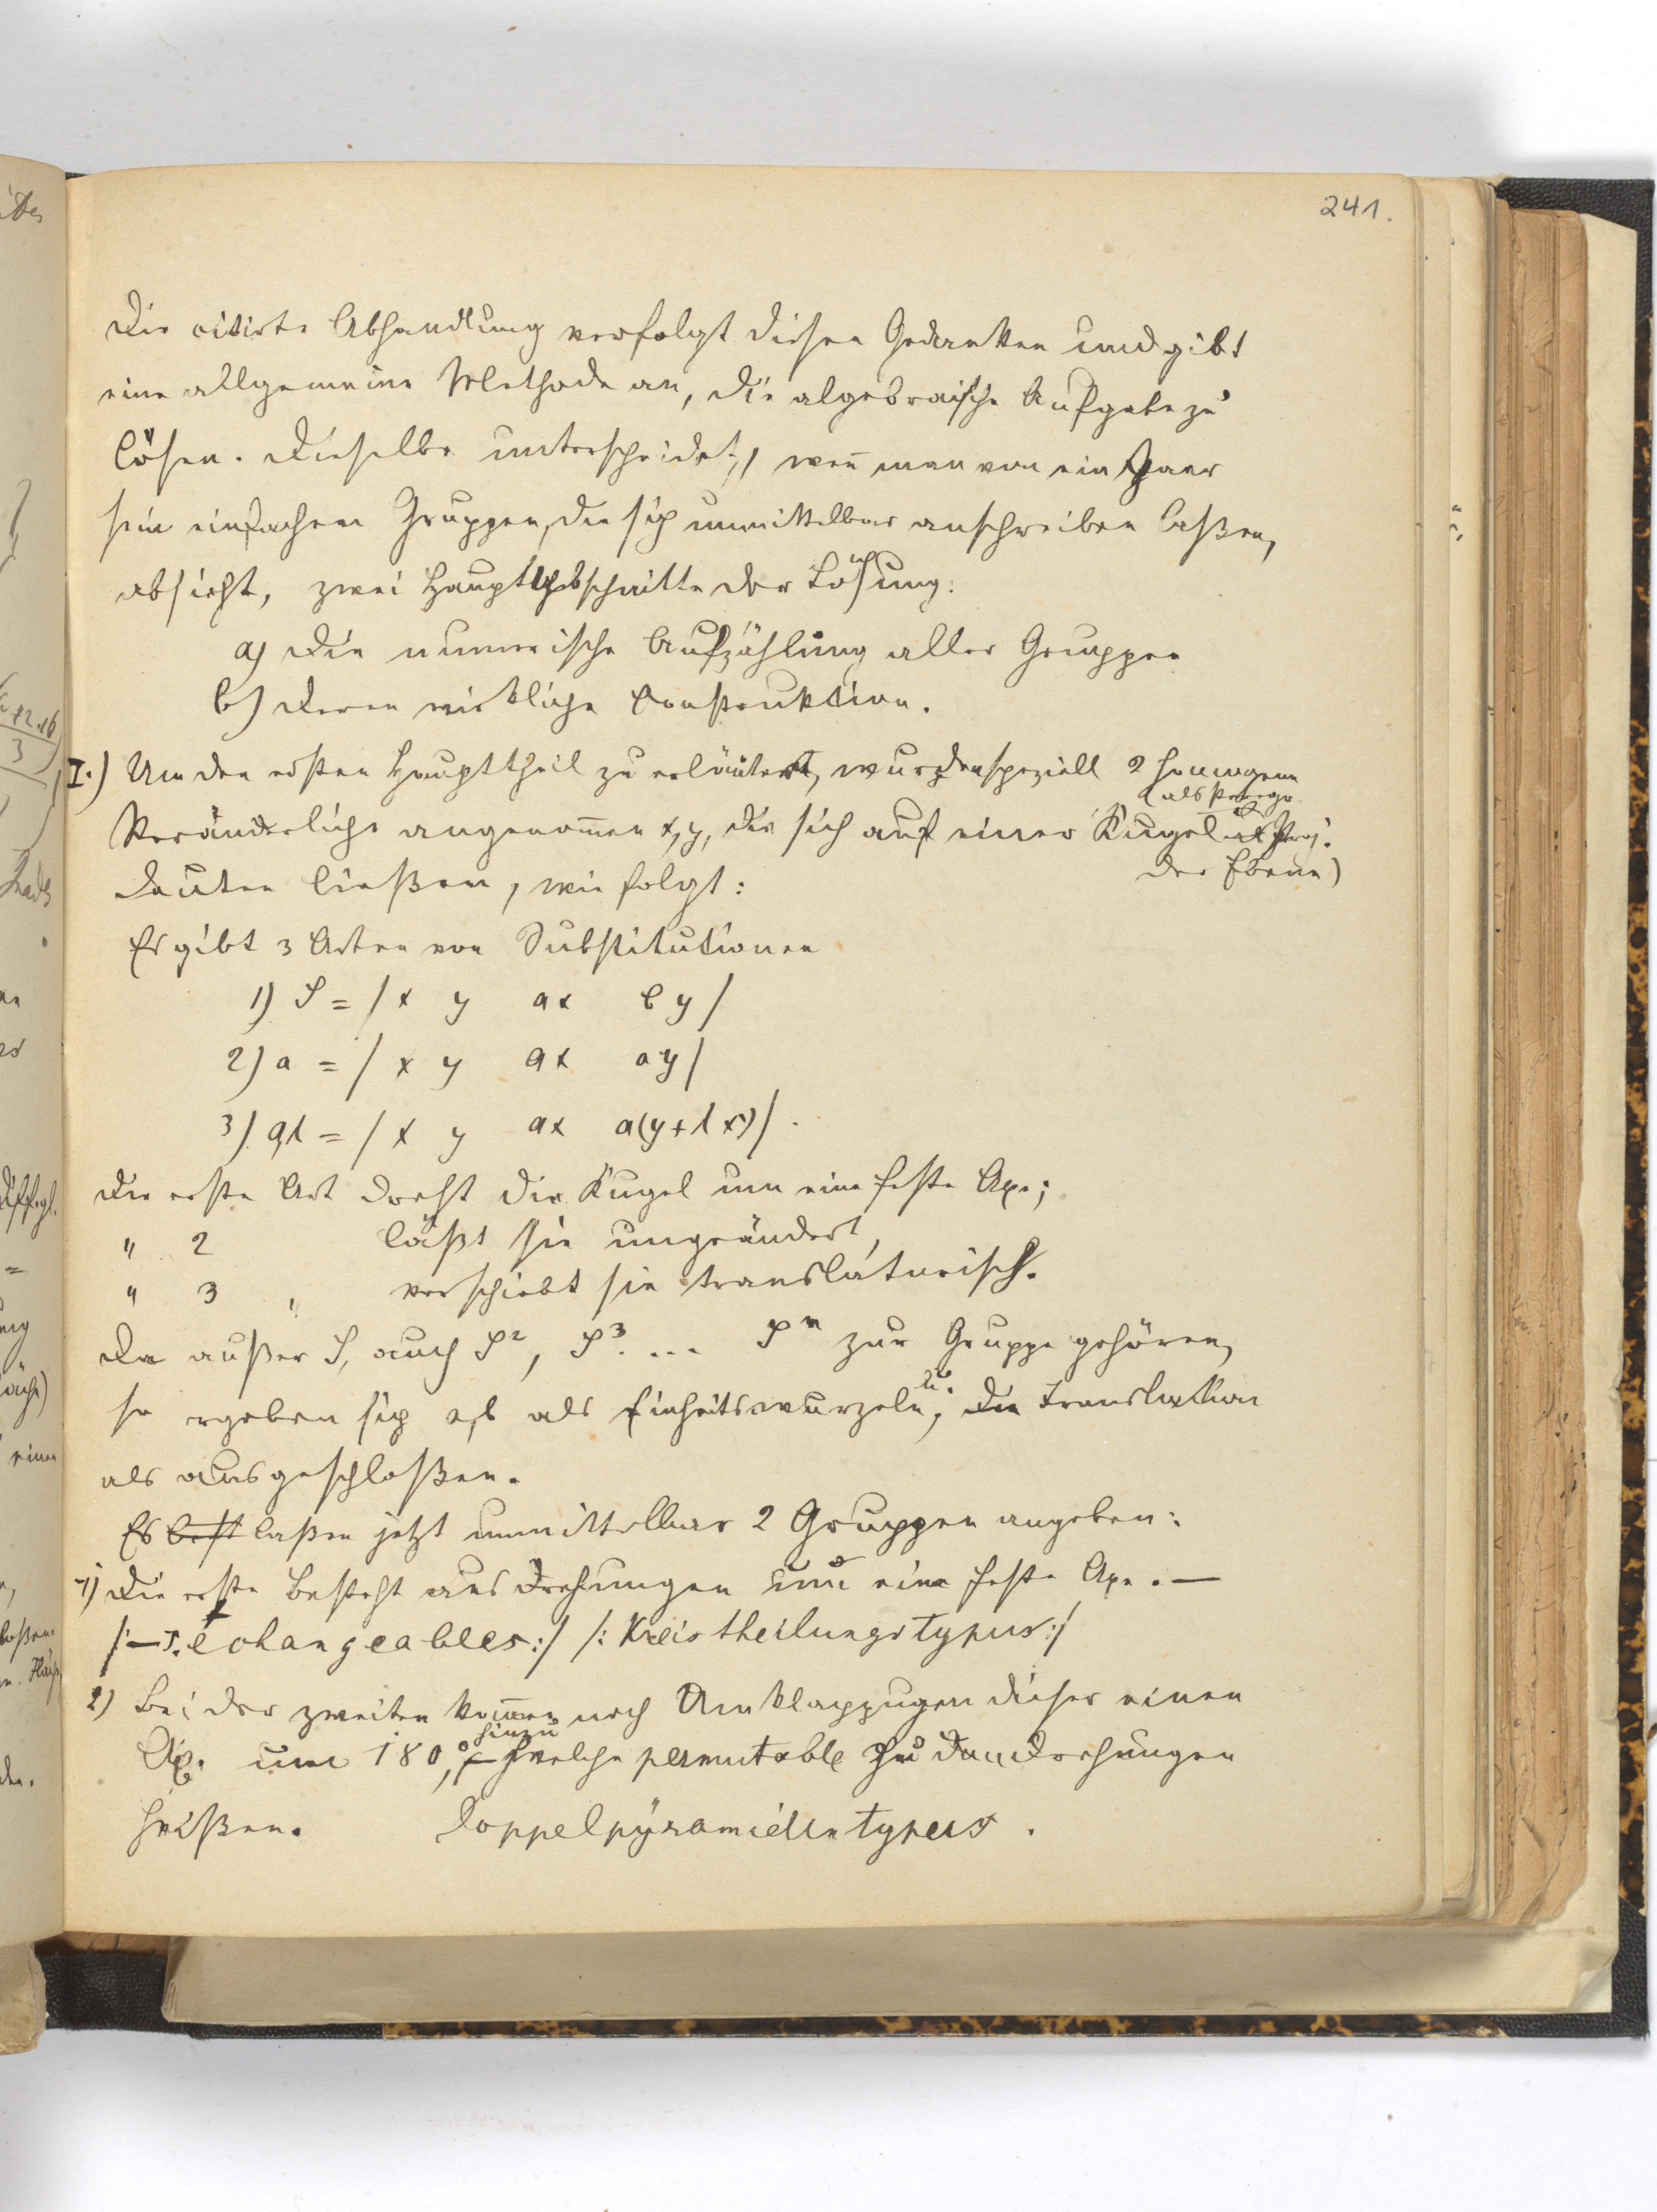 241.
Die citirte Abhandlung verfolgt diesen Gedanken und gibt
eine allgemeine Methode an, die algebraische Aufgabe zu
lösen. Dieselbe unterscheidet, wen̄ man von ein Paar
sein einfachen Gruppen, die sich unmittelbar anschreiben laßen,
absieht, zwei Hauptabschnitte der Lösung:
a) Die numerische Aufzählung aller Gruppen
b) Deren wirkliche Construktion.
I.) Um den ersten Haupttheil zu erläutern, wurden speziell 2 homogene
Veränderliche angenom̄en x, y, die sich auf einer Kugel (als stereogr. Proj.
der Ebene)
deuten ließen, wie folgt:
Es gibt 3 Arten von Substitutionen
1) S = / x y ax by /
2) a = / x y ax ay /
3) aλ = / x y ax a(y + λx) / .
Die erste Art dreht die Kugel um eine feste Axe;
" 2 läßt sie ungeändert,
" 3 " verschiebt sie translatorisch.
Da außer S, auch S², S³ ... Sⁿ zur Gruppe gehören,
so ergeben sich a, b als Einheitswurzeln; die Translation
als ausgeschloßen.
Es laßen jetzt unmittelbar 2 Gruppen angeben:
1) Die erste besteht aus Drehungen um eine feste Axe. —
/:— échangeables:/ /: Kreistheilungstypus:/
2) Bei der zweiten kom̄en noch Umklappugen dieser einen
Axe um 180°, hinzu welche permutable zu den Drehungen
heißen. Doppelpyramidentypus.